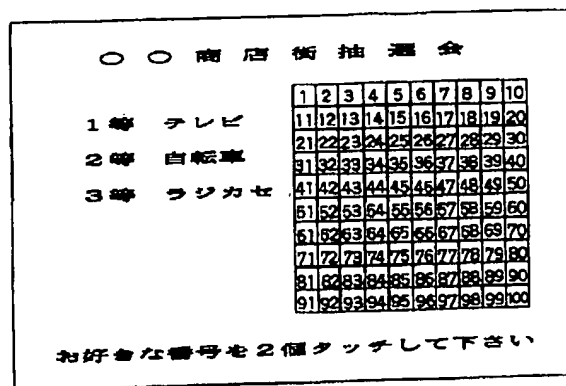 ○ ○ 商店街抽選会
1等 テレビ
2等 自転車
3等 ラジカセ
1 2 3 4 5 6 7 8 9 10
11 12 13 14 15 16 17 18 19 20
21 22 23 24 25 26 27 28 29 30
31 32 33 34 35 36 37 38 39 40
41 42 43 44 45 46 47 48 49 50
51 52 53 54 55 56 57 58 59 60
61 62 63 64 65 66 67 68 69 70
71 72 73 74 75 76 77 78 79 80
81 82 83 84 85 86 87 88 89 90
91 92 93 94 95 96 97 98 99 100
お好きな番号を2個タッチして下さい